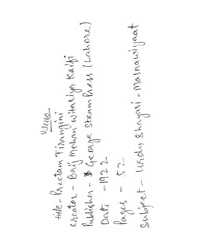 Verso
title - Preetam Tirangini
creator - Brij Mohan Witariya Kaifi
Publisher - George Steam Press (Lahore)
Date - 1922
Pages - 52
Subject - Urdu Shayari - Masnawiyaat